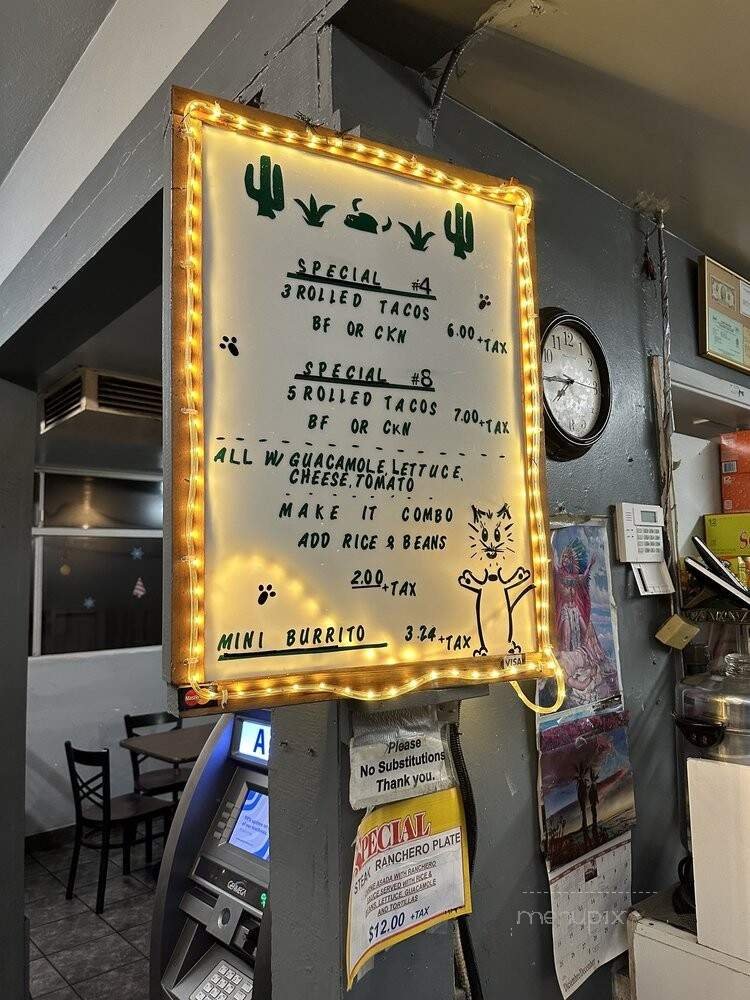 SPECIAL #4
3 ROLLED TACOS
BF OR CKN 6.00 + TAX
SPECIAL #8
5 ROLLED TACOS
BF OR CKN 7.00 + TAX
ALL W/ GUACAMOLE, LETTUCE,
CHEESE, TOMATO
MAKE IT COMBO
ADD RICE & BEANS
2.00 + TAX
MINI BURRITO 3.24 + TAX
VISA
Please
No Substitutions
Thank you.
SPECIAL
STEAK RANCHERO PLATE
ASADA WITH RANCHERO
SAUCE SERVED WITH RICE &
BEANS, LETTUCE, GUACAMOLE
AND TORTILLAS
$12.00 + TAX
A
menupix